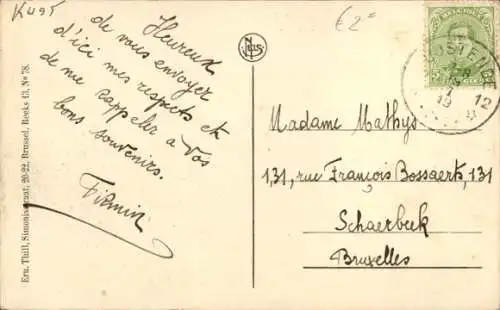 K495
€ 2=
Heureux
de vous envoyer
d'ici mes respects et
de me rappeler à vos
bons souvenirs.
Firmin
Ern. Thill, Simonisstraat, 20-22, Brussel, Reeks 43, No 78.
NELS
Madame Mathys
131, rue François Bossaerts, 131
Schaerbeek
Bruxelles
12
19